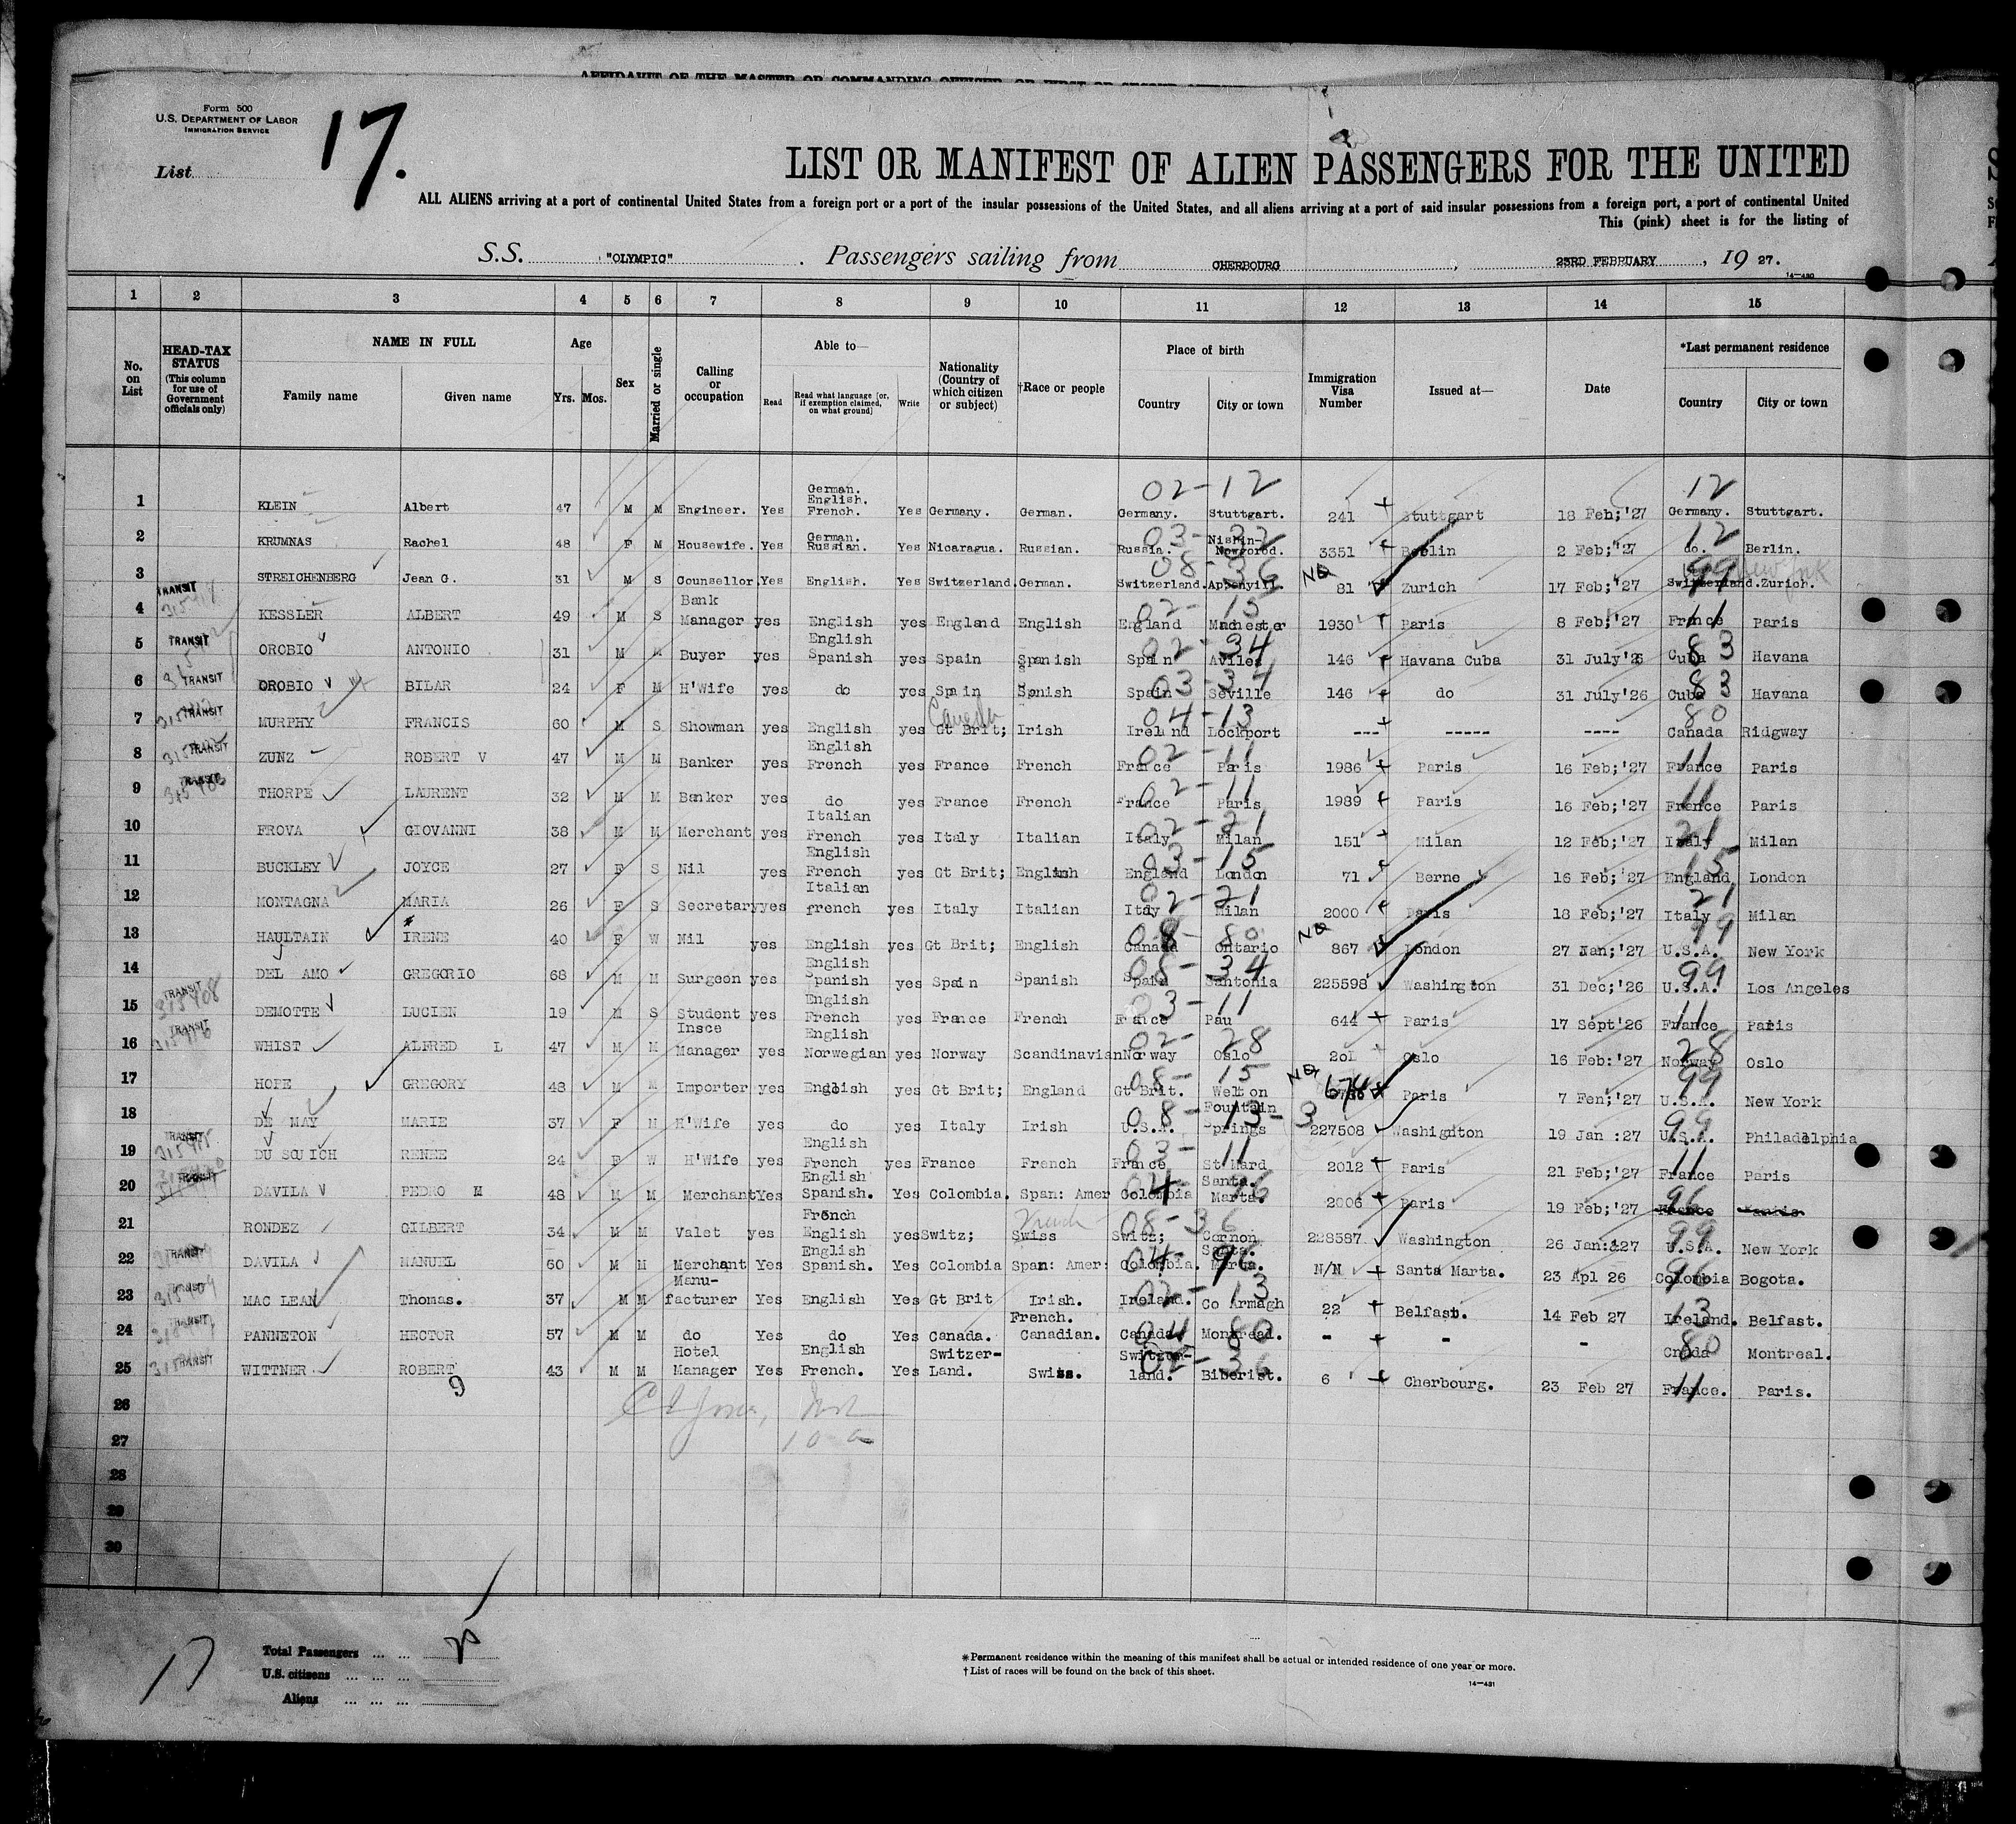 AFFIDAVIT OF THE MASTER OR COMMANDING OFFICER, OR FIRST OR SECOND
Form 500
U.S. DEPARTMENT OF LABOR
IMMIGRATION SERVICE
List 17.
LIST OR MANIFEST OF ALIEN PASSENGERS FOR THE UNITED
ALL ALIENS arriving at a port of continental United States from a foreign port or a port of the insular possessions of the United States, and all aliens arriving at a port of said insular possessions from a foreign port, a port of continental United
This (pink) sheet is for the listing of
S.S. "OLYMPIC" . Passengers sailing from CHERBOURG , 23RD FEBRUARY , 19 27.
14-430
1 2 3 4 5 6 7 8 9 10 11 12 13 14 15
No. on List HEAD-TAX STATUS (This column for use of Government officials only) NAME IN FULL Family name Given name Age Yrs. Mos. Sex Married or single Calling or occupation Able to— Read Read what language [or, if exemption claimed, on what ground] Write Nationality (Country of which citizen or subject) †Race or people Place of birth Country City or town Immigration Visa Number Issued at— Date *Last permanent residence Country City or town
1 KLEIN Albert 47 M M Engineer. Yes German. English. French. Yes Germany. German. 02-12 Germany. Stuttgart. 241 Stuttgart 18 Feb;'27 12 Germany. Stuttgart.
2 KRUMNAS Rachel 48 F M Housewife. Yes German. Russian. Yes Nicaragua. Russian. 03-32 Russia. Nishin-Nowgorod. 3351 Berlin 2 Feb;'27 12 do. Berlin.
3 STREICHENBERG Jean G. 31 M S Counsellor. Yes English. Yes Switzerland. German. 08-36 Switzerland. NQ 81 Zurich 17 Feb;'27 99 Switzerland. Zurich. New York
4 TRANSIT KESSLER ALBERT 49 M S Bank Manager yes English yes England English 02-15 England Manchester 1930 Paris 8 Feb;'27 11 France Paris
5 TRANSIT OROBIO ANTONIO 31 M M Buyer yes English Spanish yes Spain Spanish 02-34 Spain Aviles 146 Havana Cuba 31 July'26 83 Cuba Havana
6 TRANSIT OROBIO BILAR 24 F M H'Wife yes do yes Spain Spanish 03-34 Spain Seville 146 do 31 July'26 83 Cuba Havana
7 TRANSIT MURPHY FRANCIS 60 M S Showman yes English yes Canada Gt Brit; Irish 04-13 Ireland Lockport --- ----- ---- 80 Canada Ridgway
8 TRANSIT ZUNZ ROBERT V 47 M M Banker yes English French yes France French 02-11 France Paris 1986 Paris 16 Feb;'27 11 France Paris
9 TRANSIT THORPE LAURENT 32 M M Banker yes do yes France French 02-11 France Paris 1989 Paris 16 Feb;'27 11 France Paris
10 FROVA GIOVANNI 38 M M Merchant yes Italian French yes Italy Italian 02-21 Italy Milan 151 Milan 12 Feb;'27 21 Italy Milan
11 BUCKLEY JOYCE 27 F S Nil yes English French yes Gt Brit; English 03-15 England London 71 Berne 16 Feb;'27 15 England London
12 MONTAGNA MARIA 26 F S Secretary yes Italian french yes Italy Italian 02-21 Italy Milan 2000 Paris 18 Feb;'27 21 Italy Milan
13 HAULTAIN IRENE 40 F W Nil yes English yes Gt Brit; English 08-80 Canada Ontario NQ 867 London 27 Jan;'27 99 U.S.A. New York
14 DEL AMO GREGORIO 68 M M Surgeon yes English Spanish yes Spain Spanish 08-34 Spain Santonia 225598 Washington 31 Dec;'26 99 U.S.A. Los Angeles
15 TRANSIT 315908 DEMOTTE LUCIEN 19 M S Student yes English French yes France French 03-11 France Pau 644 Paris 17 Sept'26 11 France Paris
16 TRANSIT WHIST ALFRED L 47 M M Insce Manager yes English Norwegian yes Norway Scandinavian 02-28 Norway Oslo 201 Oslo 16 Feb:'27 28 Norway Oslo
17 HOPE GREGORY 48 M M Importer yes English yes Gt Brit; England 08-15 Gt Brit. Welton NQ 678 Paris 7 Fen;'27 99 U.S.A. New York
18 DE MAY MARIE 37 F M H'Wife yes do yes Italy Irish 08-13-3 U.S.A. Fountain Springs 227508 Washignton 19 Jan :27 99 U.S.A. Philadelphia
19 TRANSIT DU SOUICH RENEE 24 F W H'Wife yes English French yes France French 03-11 France St Mard 2012 Paris 21 Feb;'27 11 France Paris
20 TRANSIT DAVILA PEDRO M 48 M M Merchant Yes English Spanish. Yes Colombia. Span: Amer 04-96 Colombia Santa. Marta. 2006 Paris 19 Feb;'27 96 France
21 RONDEZ GILBERT 34 M M Valet yes French English yes Switz; French Swiss 08-36 Switz; Cornon 228587 Washington 26 Jan:27 99 U.S.A. New York
22 TRANSIT DAVILA MANUEL 60 M M Merchant Yes English Spanish. Yes Colombia Span: Amer: 04-96 Colombia. Santa. Marta. N/N Santa Marta. 23 Apl 26 96 Colombia Bogota.
23 TRANSIT MAC LEAN Thomas. 37 M M Manu-facturer Yes English Yes Gt Brit Irish. 02-13 Ireland. Co Armagh 22 Belfast. 14 Feb 27 13 Ireland. Belfast.
24 TRANSIT PANNETON HECTOR 57 M M do Yes do Yes Canada. French. Canadian. 04 80 Canada Montreal. - - - 80 Cnada Montreal.
25 TRANSIT WITTNER ROBERT 43 M M Hotel Manager Yes English French. Yes Switzer-Land. Swiss. 02-36 Switzer-land. Biberist. 6 Cherbourg. 23 Feb 27 11 France. Paris.
26
27
28
29
30
17
Total Passengers ... ...
U.S. citizens ... ... ...
Aliens ... ... ...
*Permanent residence within the meaning of this manifest shall be actual or intended residence of one year or more.
†List of races will be found on the back of this sheet.
14-431